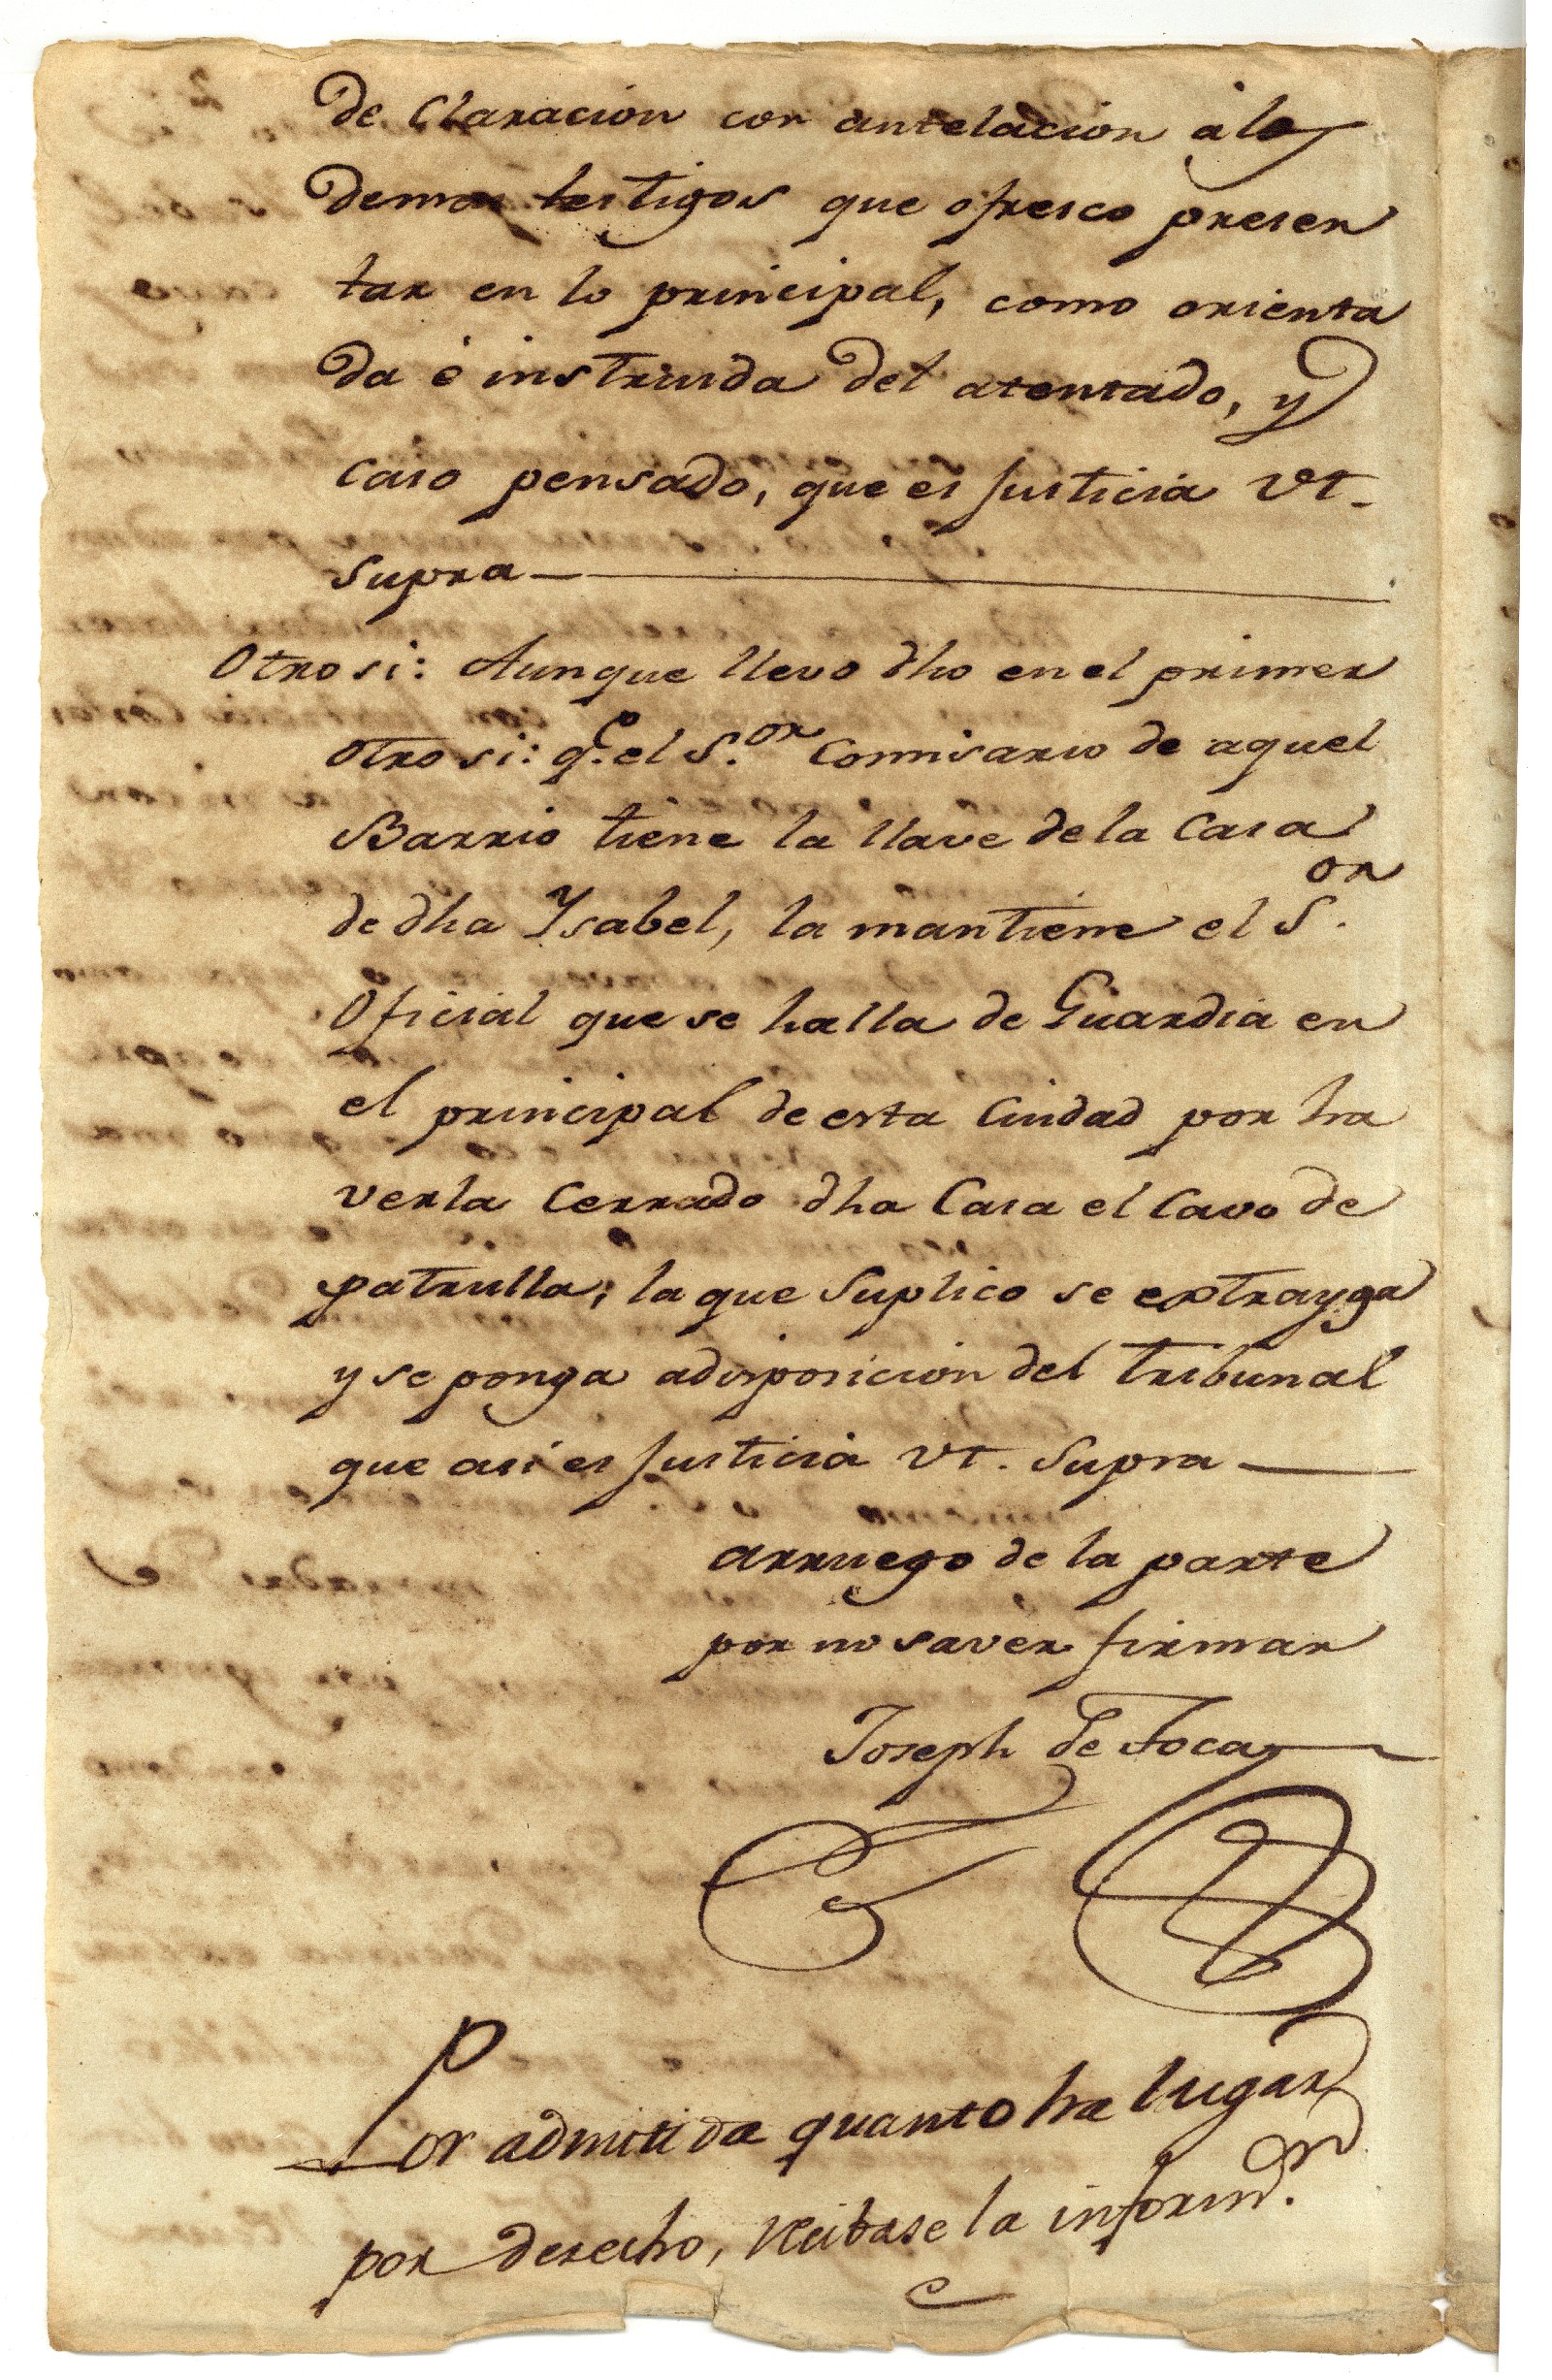 de Claracion con antelacion à los
demas testigos que ofresco presen
tar en lo principal, como orienta
da è instruida del atentado, y
caso pensado, que es Justicia Vt.
Supra
Otro si: Aunque llevo dho en el primer
otro si: q.e el S.or Comisario de aquel
Barrio tiene la llave de la Casa
de dha Ysabel, la mantiene el S.or
Oficial que se halla de Guardia en
el principal de esta Ciudad por ha
verla Cerrado dha Casa el Cavo de
patrulla; la que Suplico se extrayga
y se ponga adisposicion del tribunal
que asi es Justicia Vt. Supra
arruego de la parte
por no saver firmar
Joseph de Focas
Por admitida quanto ha lugar
por derecho, recibase la inform.on